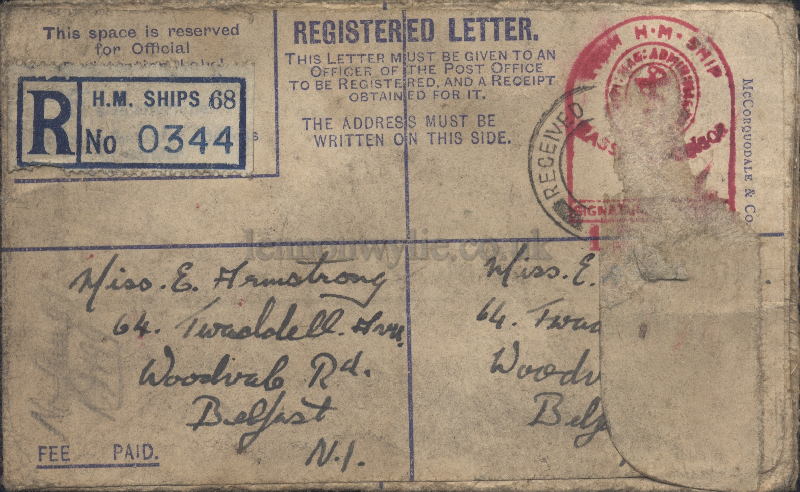 This space is reserved
for Official
R
H.M. SHIPS 68
No 0344
REGISTERED LETTER.
THIS LETTER MUST BE GIVEN TO AN
OFFICER OF THE POST OFFICE
TO BE REGISTERED, AND A RECEIPT
OBTAINED FOR IT.
THE ADDRESS MUST BE
WRITTEN ON THIS SIDE.
H·M·SHIP
RECEIVED
McCORQUODALE & Co.
lennonwylie.co.uk
Miss. E. Armstrong
64. Twaddell. Ave.
Woodvale Rd.
Belfast
N.I.
Miss. E.
64. Twad
Woodv
Belf
FEE PAID.